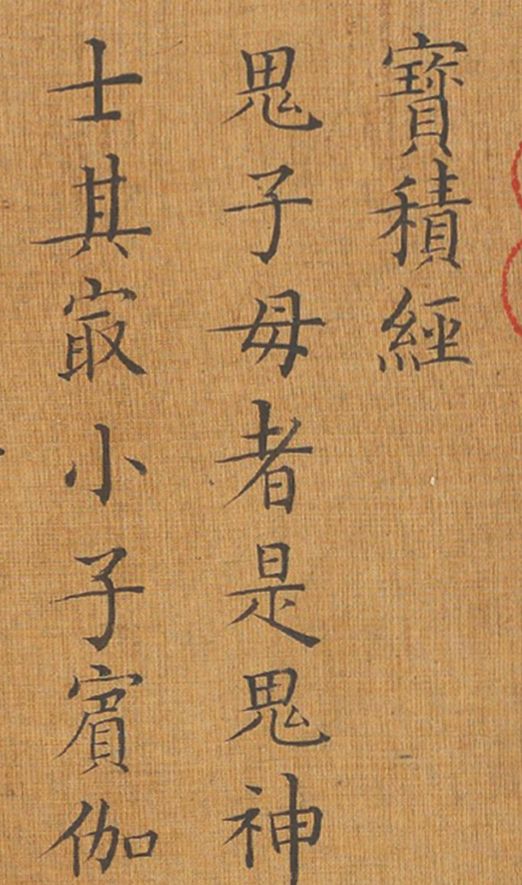 寶積經
鬼子母者是鬼神
士其㝡小子賓伽